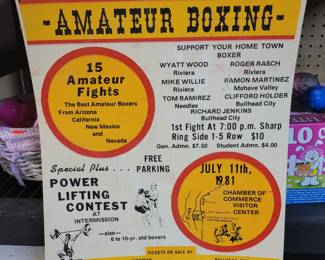 -AMATEUR BOXING-
SUPPORT YOUR HOME TOWN
BOXER
15
Amateur
Fights
The Best Amateur Boxers
From Arizona
California
New Mexico
and
Nevada
WYATT WOOD
Riviera
MIKE WILLIE
Riviera
TOM RAMIREZ
Needles
ROGER RASCH
Riviera
RAMON MARTINEZ
Mohave Valley
CLIFFORD HOLDER
Bullhead City
RICHARD JENKINS
Bullhead City
1st Fight At 7:00 p.m. Sharp
Ring Side 1-5 Row $10
Gen. Admn. $7.50 Student Admn. $4.00
Special Plus...
FREE
PARKING
POWER
LIFTING
CONTEST
AT
INTERMISSION
—also—
6 to 10-yr. old boxers
JULY 11th,
1981
CHAMBER OF
COMMERCE
VISITOR
CENTER
TICKETS ON SALE AT